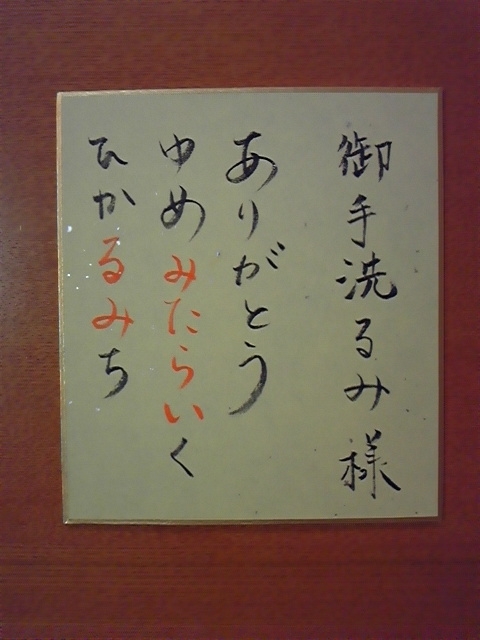 御手洗るみ様
ありがとう
ゆめみたらいく
ひかるみち